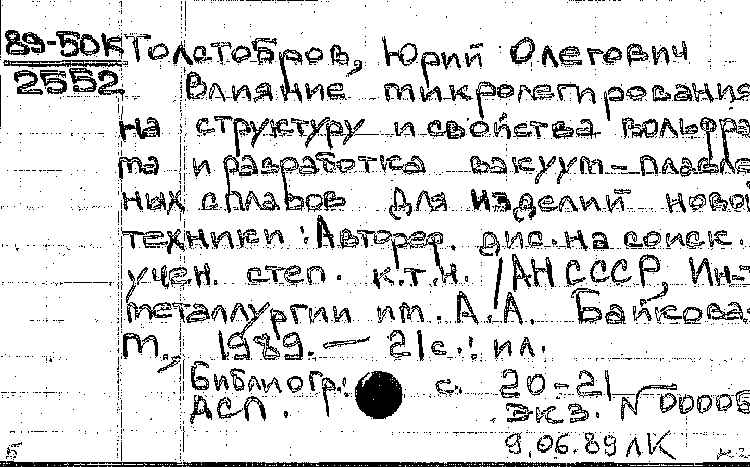 89-50К Толстобров, Юрий Олегович
2552 Влияние микролегирования
на структуру и свойства вольфра
ма и разработка вакуум-плавле
ных сплавов для изделий новой
техники: Автореф. дис. на соиск.
учен. степ. к.т.н. /АН СССР, Ин-т
металлургии им. А.А. Байкова.-
М., 1989. — 21с.: ил.
Библиогр.: с. 20-21
ДСП. экз. N 00005
9.06.89 ЛК